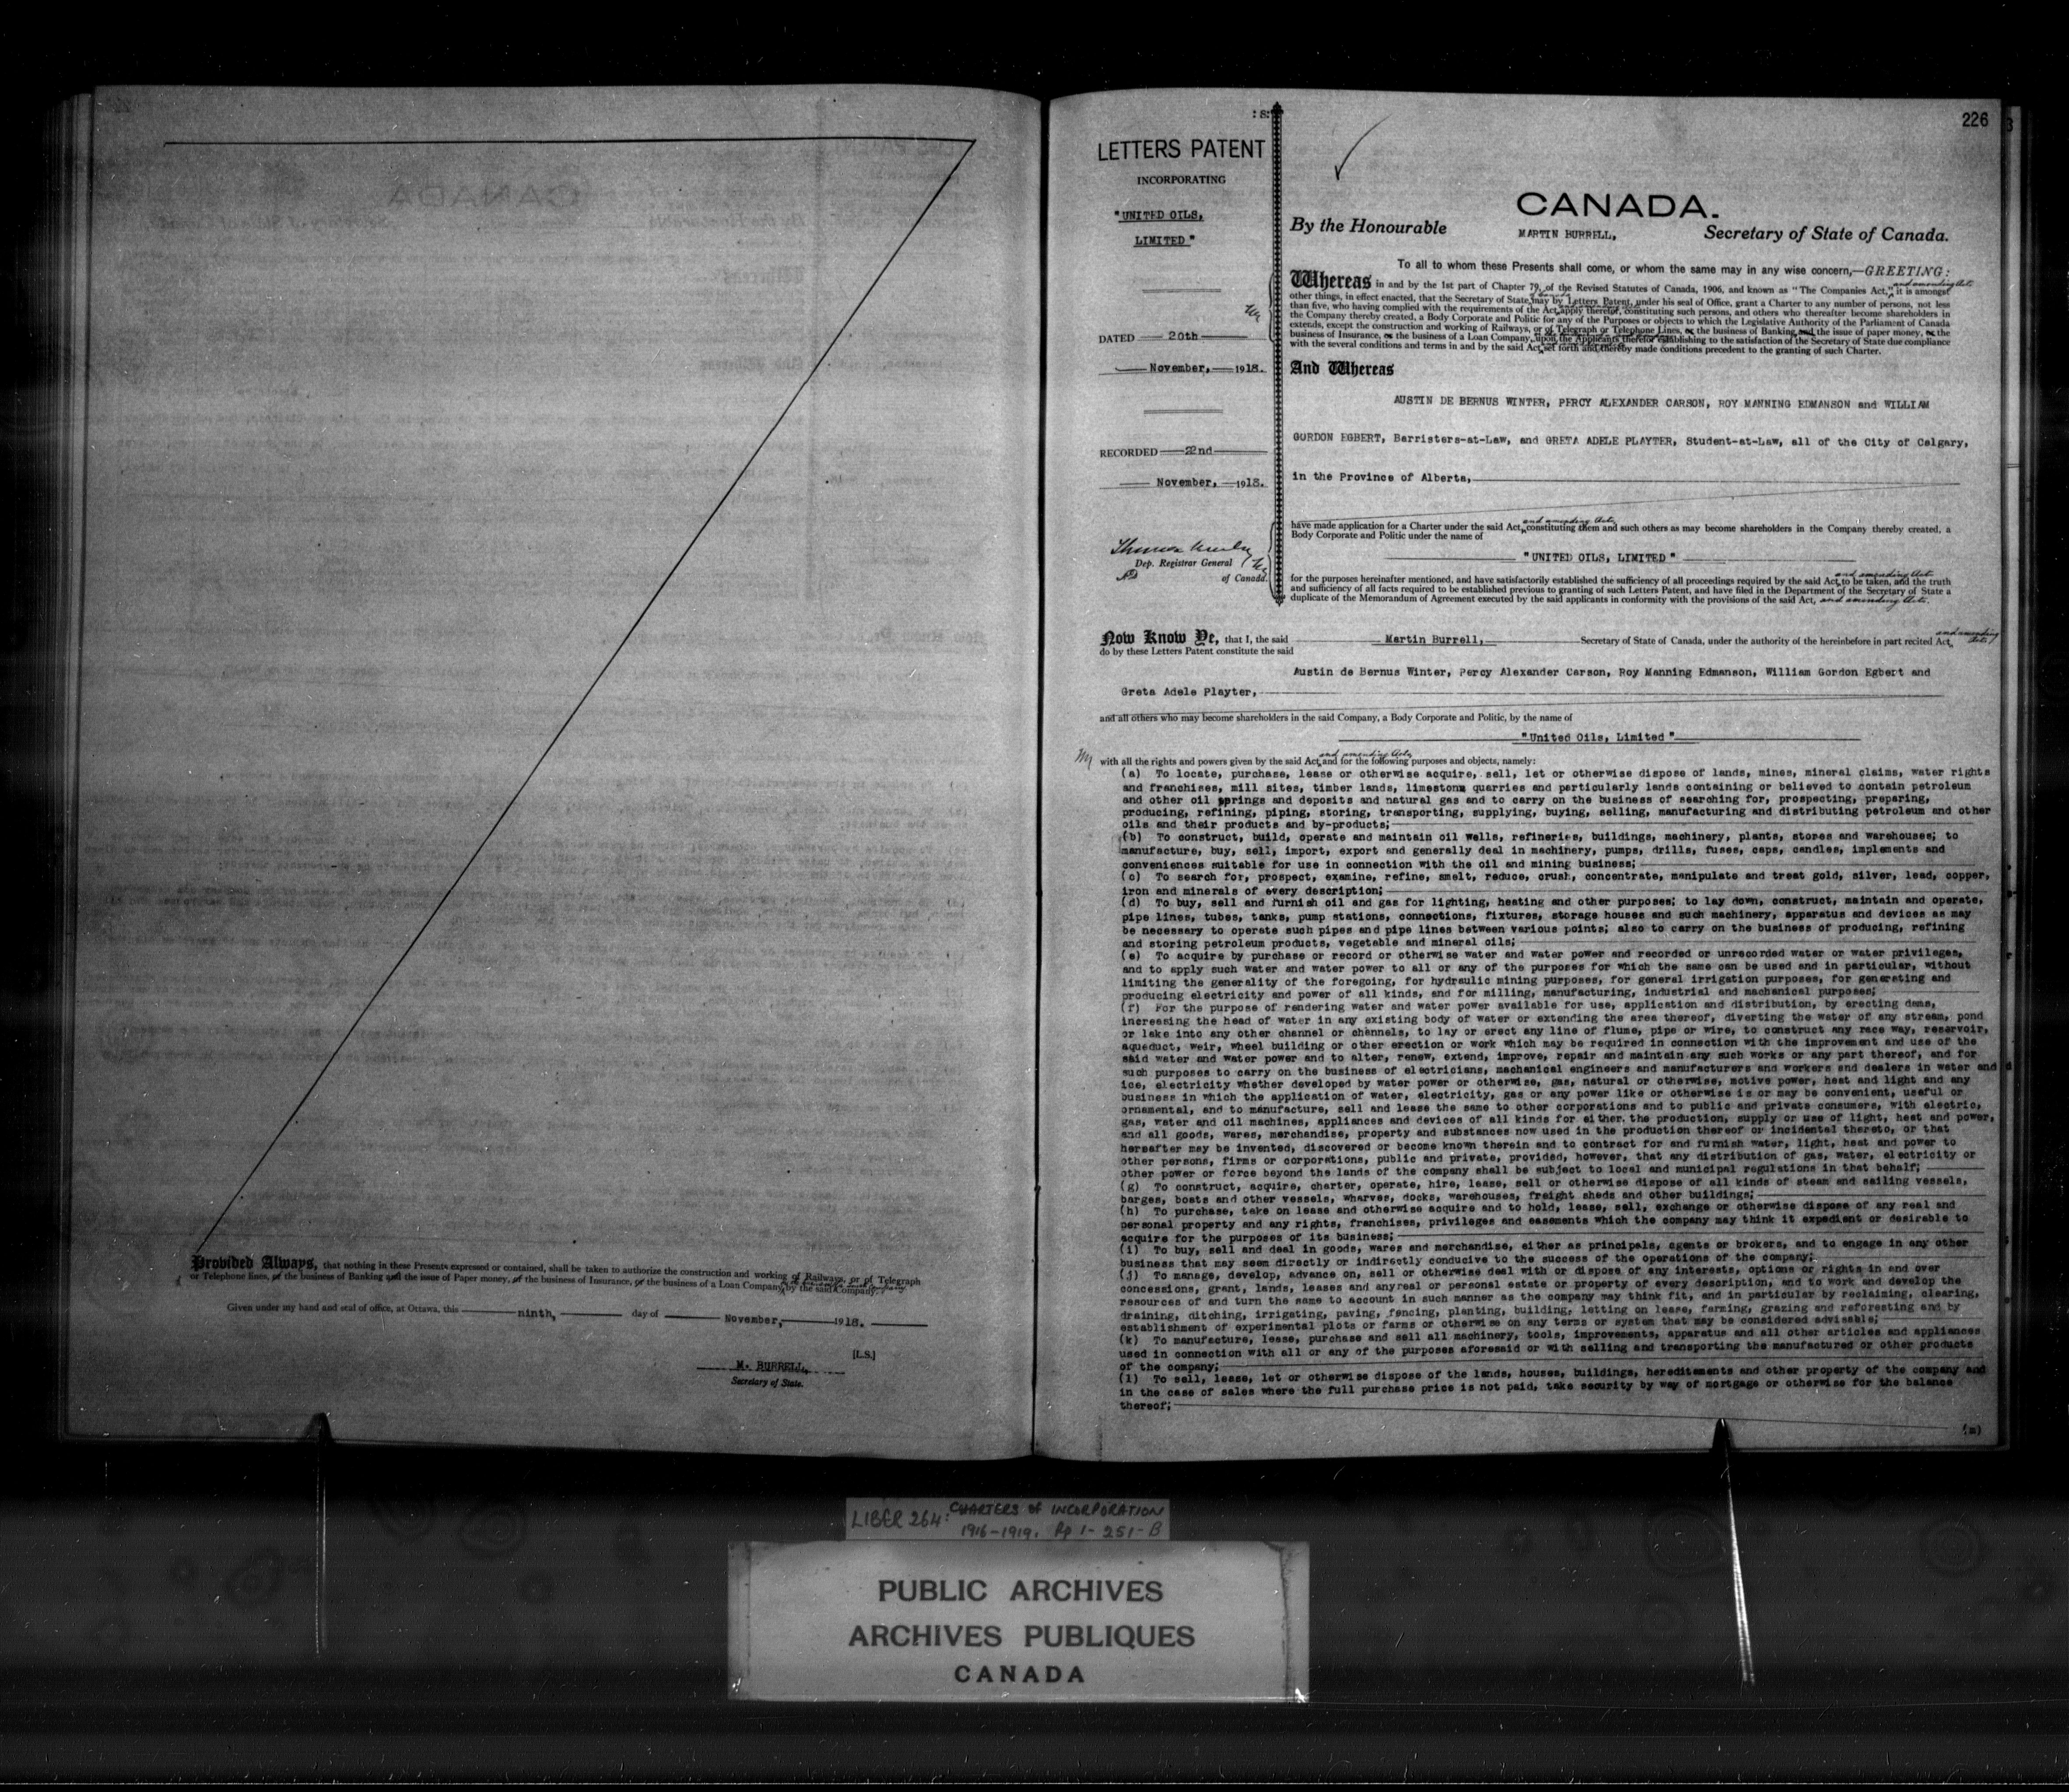 Provided Always, that nothing in these Presents expressed or contained, shall be taken to authorize the construction and working of Railways, or of Telegraph
or Telephone lines, of the business of Banking and the issue of Paper money, of the business of Insurance, or the business of a Loan Company, by the said Company.
Given under my hand and seal of office, at Ottawa, this ninth, day of November, 1918.
[L.S.]
M. BURRELL,
Secretary of State.
226
: S:
LETTERS PATENT
INCORPORATING
"UNITED OILS,
LIMITED"
DATED 20th
November, 1918.
RECORDED 22nd
November, 1918.
Dep. Registrar General
of Canada.
CANADA.
By the Honourable MARTIN BURRELL, Secretary of State of Canada.
To all to whom these Presents shall come, or whom the same may in any wise concern,—GREETING:
Whereas in and by the 1st part of Chapter 79, of the Revised Statutes of Canada, 1906, and known as "The Companies Act," and amending Acts it is amongst
other things, in effect enacted, that the Secretary of State may by Letters Patent, under his seal of Office, grant a Charter to any number of persons, not less
than five, who having complied with the requirements of the Act apply therefor, constituting such persons, and others who thereafter become shareholders in
the Company thereby created, a Body Corporate and Politic for any of the Purposes or objects to which the Legislative Authority of the Parliament of Canada
extends, except the construction and working of Railways, or of Telegraph or Telephone Lines, or the business of Banking and the issue of paper money, or the
business of Insurance, or the business of a Loan Company, upon the Applicants therefor establishing to the satisfaction of the Secretary of State due compliance
with the several conditions and terms in and by the said Act set forth and thereby made conditions precedent to the granting of such Charter.
And Whereas
AUSTIN DE BERNUS WINTER, PERCY ALEXANDER CARSON, ROY MANNING EDMANSON and WILLIAM
GORDON EGBERT, Barristers-at-Law, and GRETA ADELE PLAYTER, Student-at-Law, all of the City of Calgary,
in the Province of Alberta,
have made application for a Charter under the said Act, and amending Acts, constituting them and such others as may become shareholders in the Company thereby created, a
Body Corporate and Politic under the name of
"UNITED OILS, LIMITED"
for the purposes hereinafter mentioned, and have satisfactorily established the sufficiency of all proceedings required by the said Act and amending Acts to be taken, and the truth
and sufficiency of all facts required to be established previous to granting of such Letters Patent, and have filed in the Department of the Secretary of State a
duplicate of the Memorandum of Agreement executed by the said applicants in conformity with the provisions of the said Act, and amending Acts.
Now Know Ye, that I, the said Martin Burrell, Secretary of State of Canada, under the authority of the hereinbefore in part recited Act, and amending Acts
do by these Letters Patent constitute the said
Austin de Bernus Winter, Percy Alexander Carson, Roy Manning Edmanson, William Gordon Egbert and
Greta Adele Playter,
and all others who may become shareholders in the said Company, a Body Corporate and Politic, by the name of
"United Oils, Limited"
with all the rights and powers given by the said Act, and amending Acts, and for the following purposes and objects, namely:
(a) To locate, purchase, lease or otherwise acquire, sell, let or otherwise dispose of lands, mines, mineral claims, water rights
and franchises, mill sites, timber lands, limestone quarries and particularly lands containing or believed to contain petroleum
and other oil springs and deposits and natural gas and to carry on the business of searching for, prospecting, preparing,
producing, refining, piping, storing, transporting, supplying, buying, selling, manufacturing and distributing petroleum and other
oils and their products and by-products;
(b) To construct, build, operate and maintain oil wells, refineries, buildings, machinery, plants, stores and warehouses; to
manufacture, buy, sell, import, export and generally deal in machinery, pumps, drills, fuses, caps, candles, implements and
conveniences suitable for use in connection with the oil and mining business;
(c) To search for, prospect, examine, refine, smelt, reduce, crush, concentrate, manipulate and treat gold, silver, lead, copper,
iron and minerals of every description;
(d) To buy, sell and furnish oil and gas for lighting, heating and other purposes; to lay down, construct, maintain and operate,
pipe lines, tubes, tanks, pump stations, connections, fixtures, storage houses and such machinery, apparatus and devices as may
be necessary to operate such pipes and pipe lines between various points; also to carry on the business of producing, refining
and storing petroleum products, vegetable and mineral oils;
(e) To acquire by purchase or record or otherwise water and water power and recorded or unrecorded water or water privileges,
and to apply such water and water power to all or any of the purposes for which the same can be used and in particular, without
limiting the generality of the foregoing, for hydraulic mining purposes, for general irrigation purposes, for generating and
producing electricity and power of all kinds, and for milling, manufacturing, industrial and machanical purposes;
(f) For the purpose of rendering water and water power available for use, application and distribution, by erecting dams,
increasing the head of water in any existing body of water or extending the area thereof, diverting the water of any stream, pond
or lake into any other channel or channels, to lay or erect any line of flume, pipe or wire, to construct any race way, reservoir,
aqueduct, weir, wheel building or other erection or work which may be required in connection with the improvement and use of the
said water and water power and to alter, renew, extend, improve, repair and maintain any such works or any part thereof, and for
such purposes to carry on the business of electricians, mechanical engineers and manufacturers and workers and dealers in water and
ice, electricity whether developed by water power or otherwise, gas, natural or otherwise, motive power, heat and light and any
business in which the application of water, electricity, gas or any power like or otherwise is or may be convenient, useful or
ornamental, and to manufacture, sell and lease the same to other corporations and to public and private consumers, with electric,
gas, water and oil machines, appliances and devices of all kinds for either the production, supply or use of light, heat and power,
and all goods, wares, merchandise, property and substances now used in the production thereof or incidental thereto, or that
hereafter may be invented, discovered or become known therein and to contract for and furnish water, light, heat and power to
other persons, firms or corporations, public and private, provided, however, that any distribution of gas, water, electricity or
other power or force beyond the lands of the company shall be subject to local and municipal regulations in that behalf;
(g) To construct, acquire, charter, operate, hire, lease, sell or otherwise dispose of all kinds of steam and sailing vessels,
barges, boats and other vessels, wharves, docks, warehouses, freight sheds and other buildings;
(h) To purchase, take on lease and otherwise acquire and to hold, lease, sell, exchange or otherwise dispose of any real and
personal property and any rights, franchises, privileges and easements which the company may think it expedient or desirable to
acquire for the purposes of its business;
(i) To buy, sell and deal in goods, wares and merchandise, either as principals, agents or brokers, and to engage in any other
business that may seem directly or indirectly conducive to the success of the operations of the company;
(j) To manage, develop, advance on, sell or otherwise deal with or dispose of any interests, options or rights in and over
concessions, grant, lands, leases and anyreal or personal estate or property of every description, and to work and develop the
resources of and turn the same to account in such manner as the company may think fit, and in particular by reclaiming, clearing,
draining, ditching, irrigating, paving, fencing, planting, building, letting on lease, farming, grazing and reforesting and by
establishment of experimental plots or farms or otherwise on any terms or system that may be considered advisable;
(k) To manufacture, lease, purchase and sell all machinery, tools, improvements, apparatus and all other articles and appliances
used in connection with all or any of the purposes aforesaid or with selling and transporting the manufactured or other products
of the company;
(l) To sell, lease, let or otherwise dispose of the lands, houses, buildings, hereditaments and other property of the company and
in the case of sales where the full purchase price is not paid, take security by way of mortgage or otherwise for the balance
thereof;
(m)
LIBER 264: CHARTERS of INCORPORATION
1916-1919. Pp 1-251-B
PUBLIC ARCHIVES
ARCHIVES PUBLIQUES
CANADA